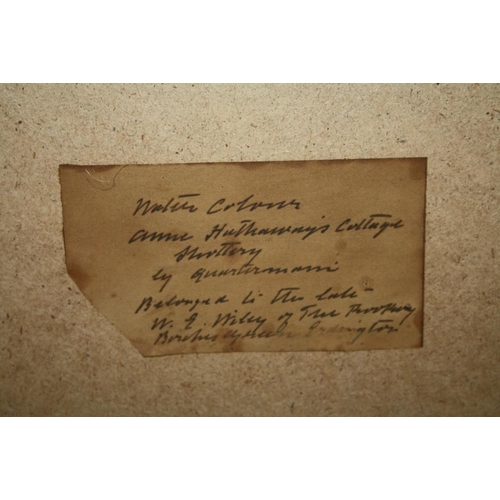 Water Colour
Anne Hathaway's Cottage
Shottery
by Quartermain
Belonged to the late
W. E. Wiley of The
Erdington